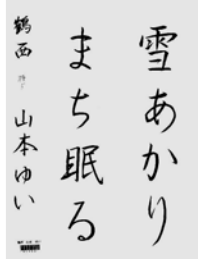 雪あかり
まち眠る
鶴西 山本ゆい